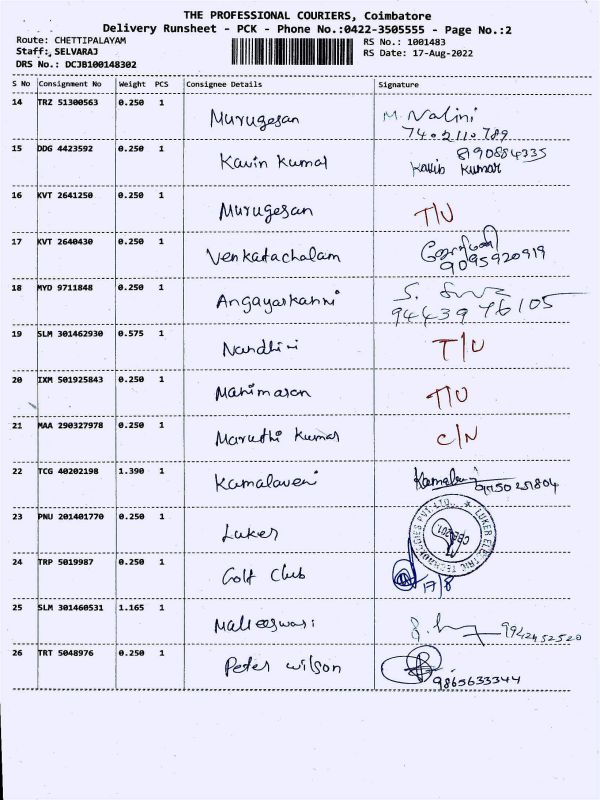 THE PROFESSIONAL COURIERS, Coimbatore
Delivery Runsheet - PCK - Phone No.:0422-3505555 - Page No.:2
Route: CHETTIPALAYAM
RS No.: 1001483
Staff: SELVARAJ
RS Date: 17-Aug-2022
DRS No.: DCJB100148302
S No Consignment No Weight PCS Consignee Details Signature
14 TRZ 51300563 0.250 1 Murugesan M. Nalini
15 DDG 4423592 0.250 1 Kavin Kumar 8190884335
Kavin Kumar
16 KVT 2641250 0.250 1 Murugesan T/U
17 KVT 2640430 0.250 1 Venkatachalam
9095920919
18 MYD 9711848 0.250 1 Angayarkanni S.
94439 76105
19 SLM 301462930 0.575 1 Nandhini T/U
20 IXM 501925843 0.250 1 Manimaran T/U
21 MAA 290327978 0.250 1 Maruthi Kumar C/N
22 TCG 40202198 1.390 1 Kamalaveni
9750251804
23 PNU 201401770 0.250 1 Luker LUKER ELECTRIC TECHNOLOGIES PVT. LTD.
24 TRP 5019987 0.250 1 Golf Club 17/8
25 SLM 301460531 1.165 1 Maheeswari 9942452520
26 TRT 5048976 0.250 1 Peter Wilson 9865633344